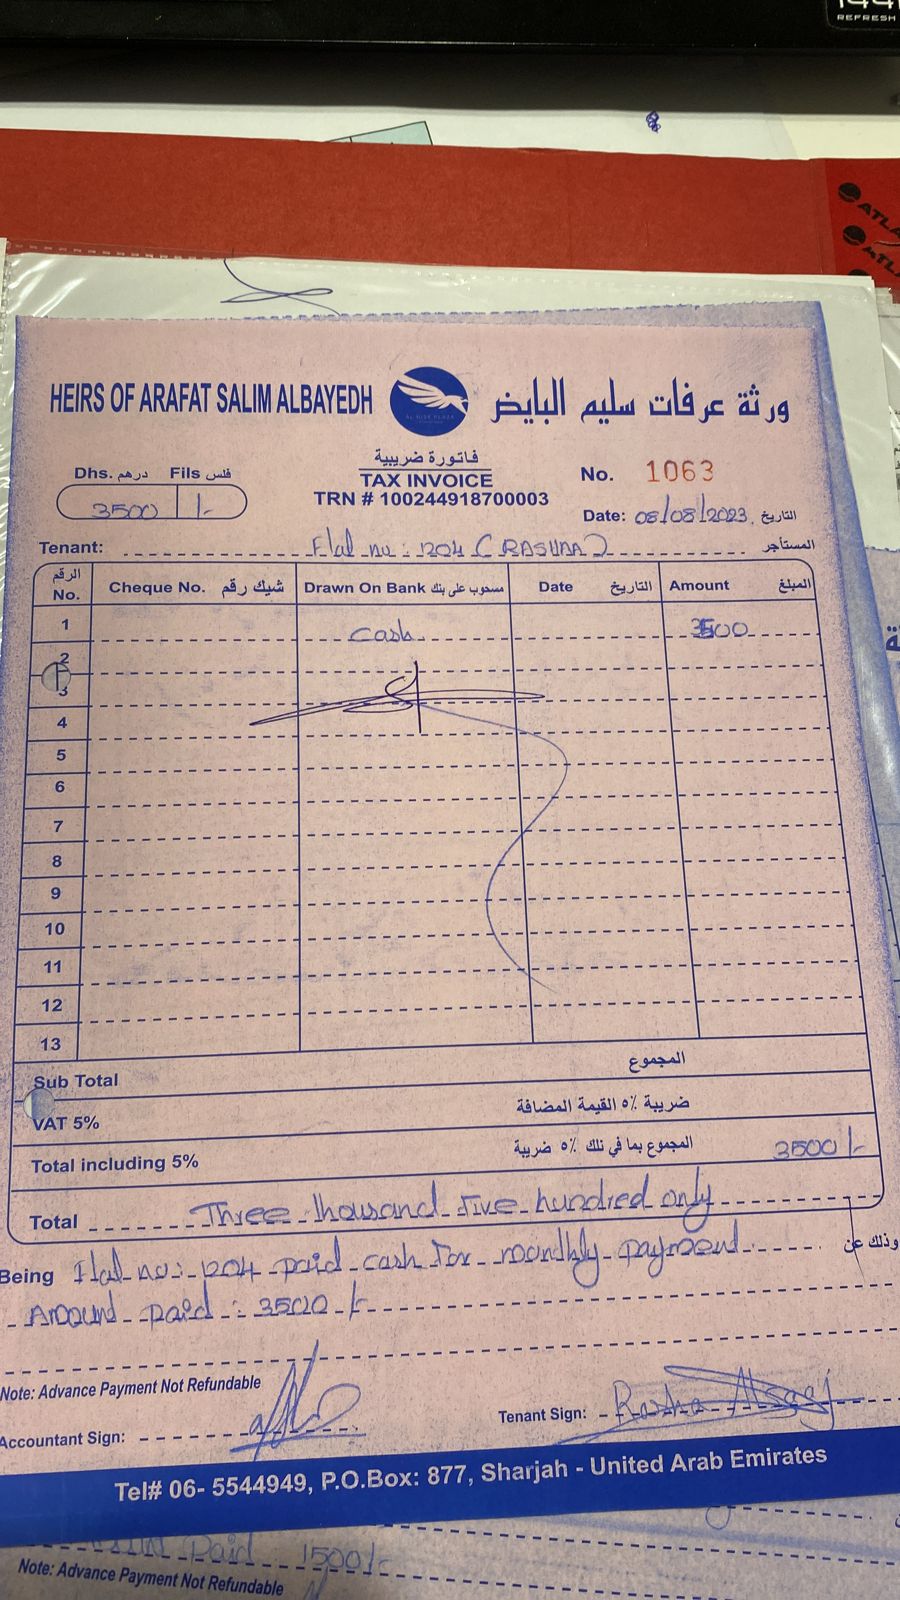 144
REFRESH
ATLA
ATLA
HEIRS OF ARAFAT SALIM ALBAYEDH ورثة عرفات سليم البايض
فاتورة ضريبية
TAX INVOICE
TRN # 100244918700003
Dhs. درهم Fils فلس
3500 /-
No. 1063
Date: 08/08/2023 التاريخ
Tenant: Flat no: 1204 (RASHA) المستأجر
الرقم No. Cheque No. شيك رقم Drawn On Bank مسحوب على بنك Date التاريخ Amount المبلغ
1 cash 3500
2
3
4
5
6
7
8
9
10
11
12
13
Sub Total المجموع
VAT 5% ضريبة ٥٪ القيمة المضافة
Total including 5% المجموع بما في ذلك ٥٪ ضريبة 3500/-
Total Three thousand five hundred only
Being Flat no: 1204 paid cash for monthly payment وذلك عن
Amount paid: 3500/-
Note: Advance Payment Not Refundable
Accountant Sign: Tenant Sign: Rasha
Tel# 06- 5544949, P.O.Box: 877, Sharjah - United Arab Emirates
paid 1500/-
Note: Advance Payment Not Refundable